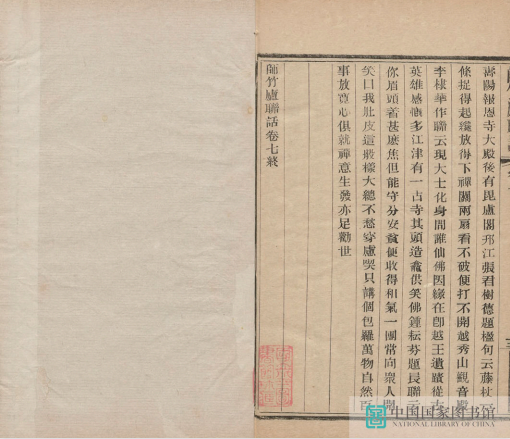 壽陽報恩寺大殿後有毘盧閣邗江張君樹德題楹句云藤杖一
條捉得起纔放得下禪關兩扇看不破便打不開越秀山觀音巖
李棣華作聯云現大士化身閒雜仙佛因緣在卽越王遺蹟從古
英雄感慨多江津有一古寺其頭造龕供笑佛鍾耘芬題長聯云
你眉頭着甚麽焦但能守分安貧便收得和氣一團常向衆人開
笑口我肚皮這般樣大總不愁穿慮喫只講個包羅萬物自然百
事放寬心俱就禪意生發亦足勸世
師竹廬聯話卷七終
中国国家图书馆
NATIONAL LIBRARY OF CHINA